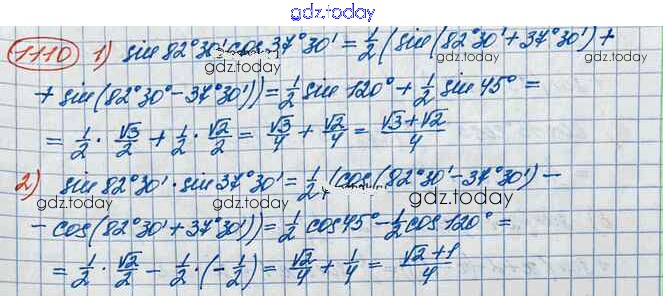 gdz.today
1110 1) sin 82°30' cos 37°30' = 1/2 (sin(82°30' + 37°30') +
gdz.today
+ sin(82°30° - 37°30')) = 1/2 sin 120° + 1/2 sin 45° =
= 1/2 · √3/2 + 1/2 · √2/2 = √3/4 + √2/4 = (√3+√2)/4
2) sin 82°30' · sin 37°30' = 1/2 (cos(82°30' - 37°30') -
gdz.today
gdz.today
- cos(82°30' + 37°30')) = 1/2 cos 45° - 1/2 cos 120° =
= 1/2 · √2/2 - 1/2 · (-1/2) = √2/4 + 1/4 = (√2+1)/4
gdz.today